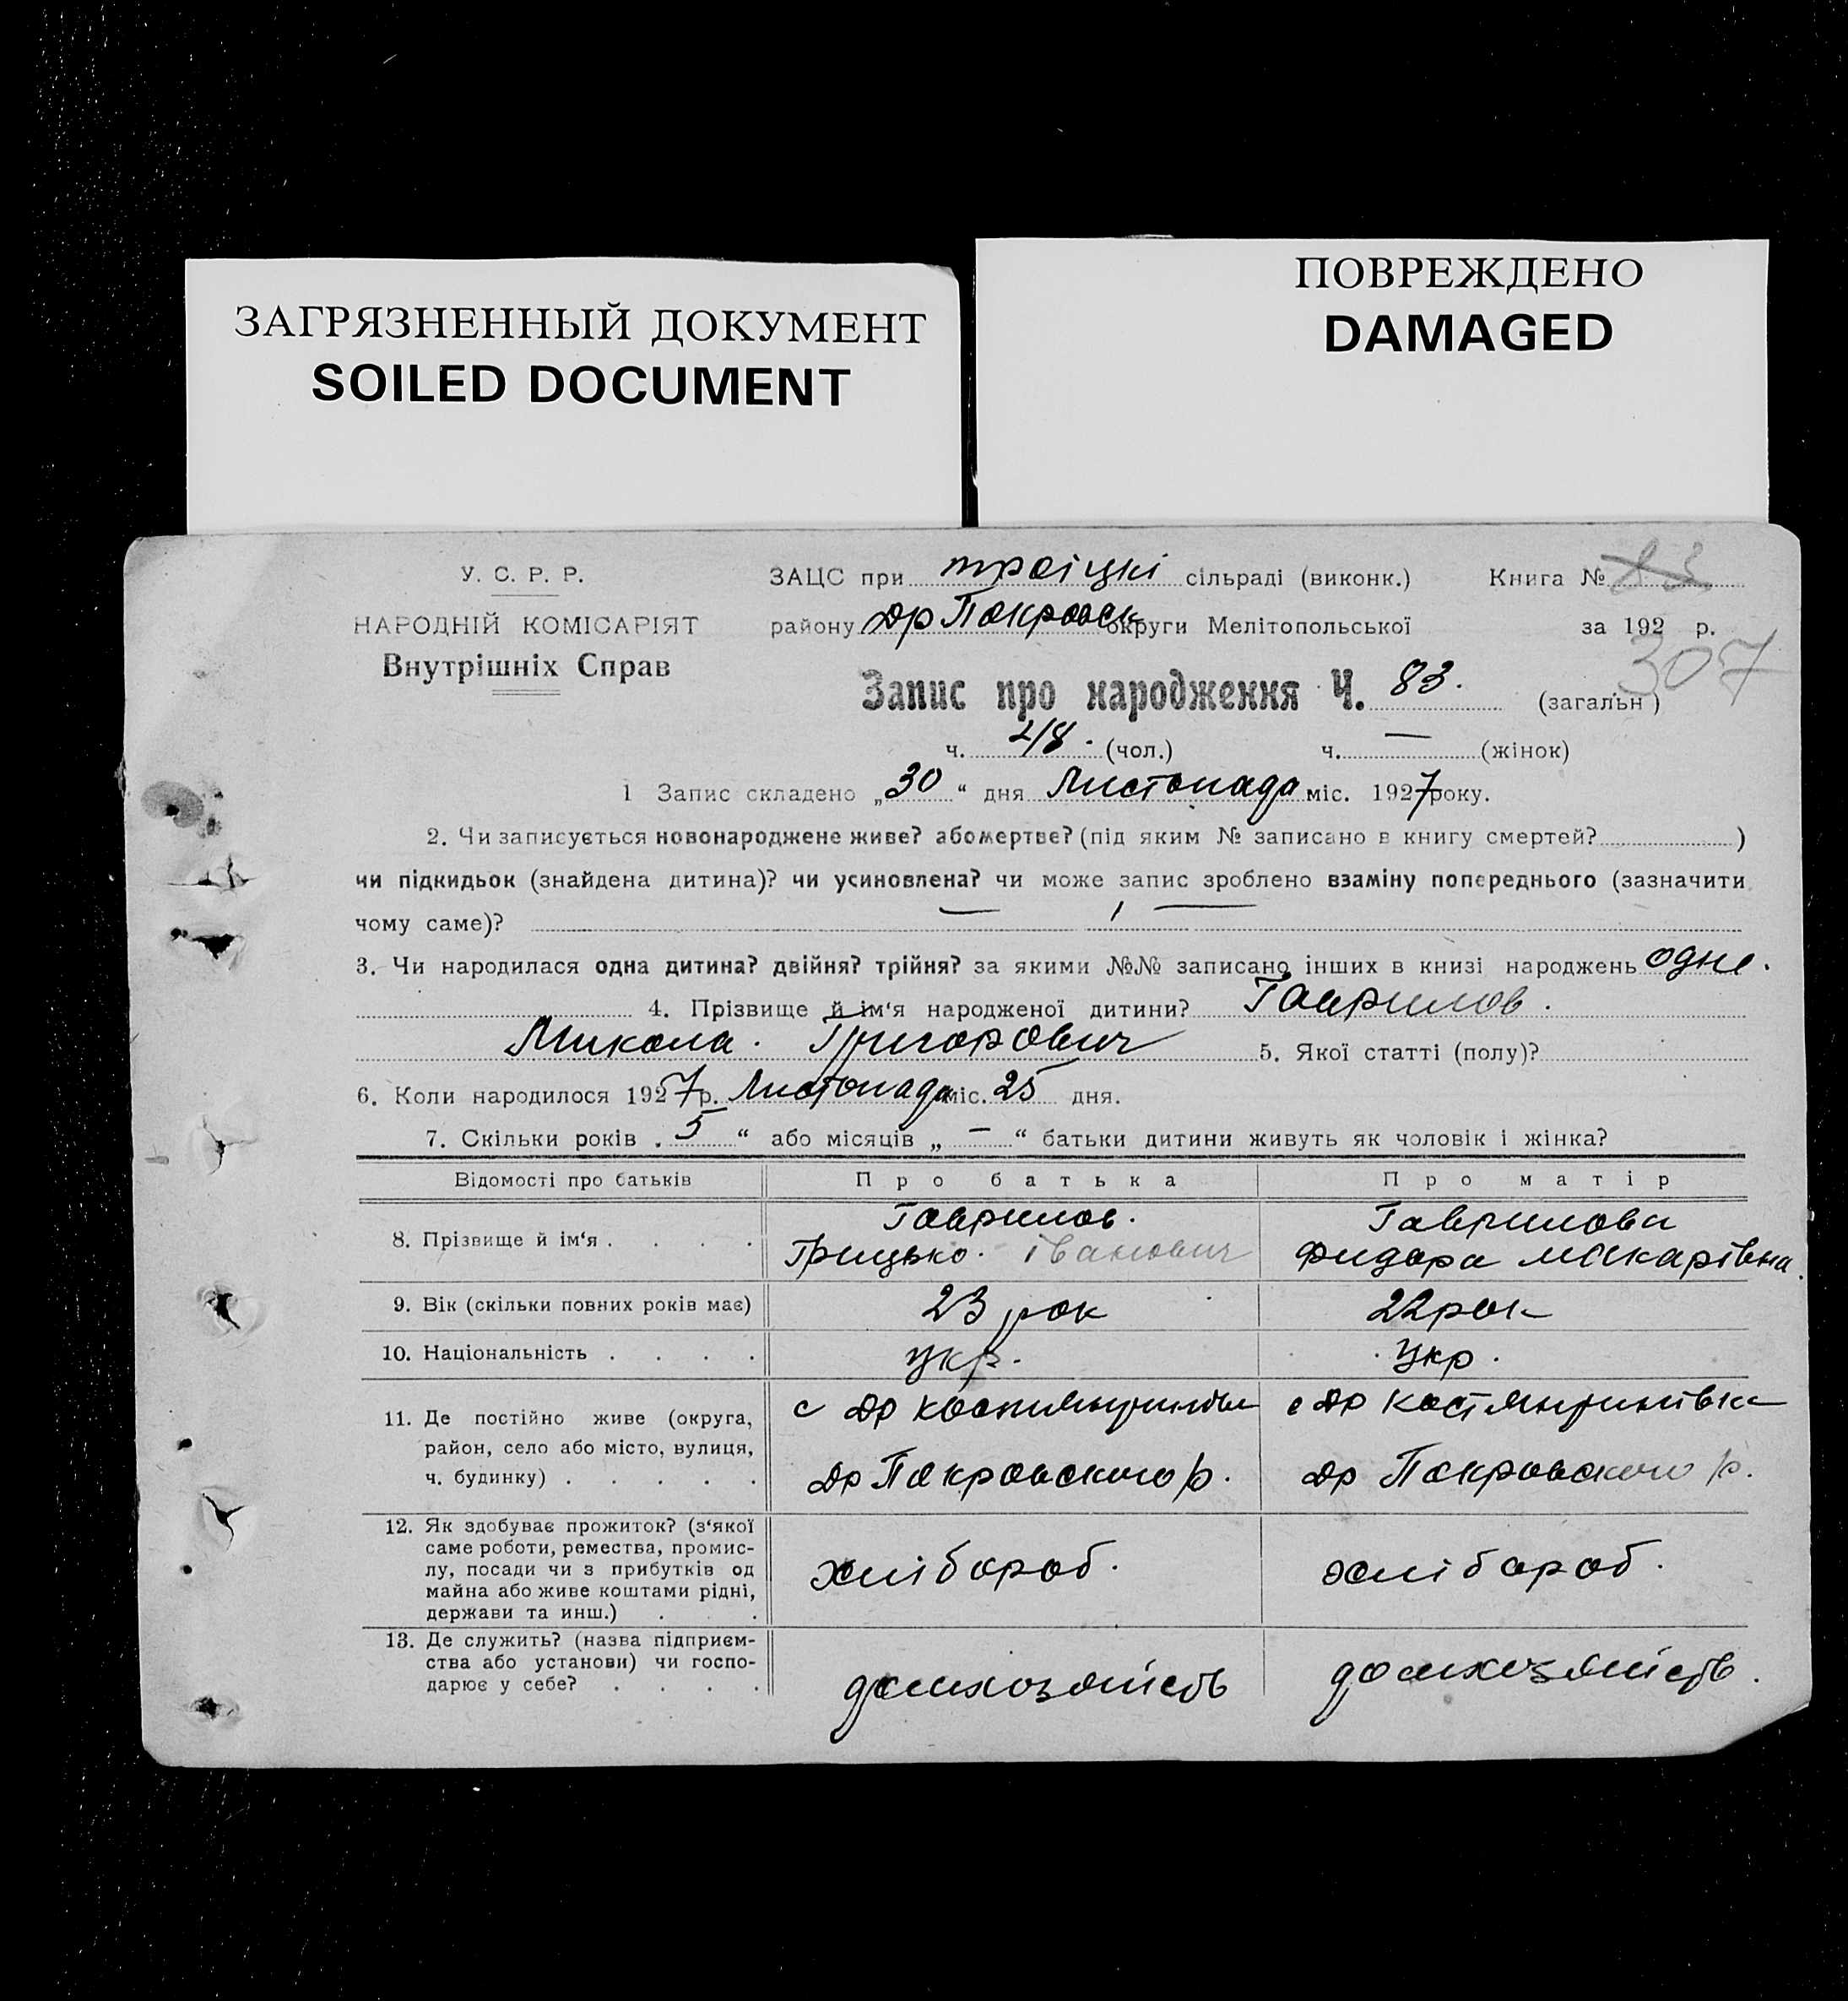 ЗАГРЯЗНЕННЫЙ ДОКУМЕНТ
SOILED DOCUMENT
ПОВРЕЖДЕНО
DAMAGED
У. С. Р. Р.
НАРОДНІЙ КОМІСАРІЯТ
Внутрішніх Справ
ЗАЦС при троіцкі сільраді (виконк.) Книга № 83
району др Покровск округи Мелітопольської за 192 р.
307
Запис про народження Ч. 83. (загальн)
ч. 48. (чол.) ч. — (жінок)
1 Запис складено „30“ дня Листопада міс. 1927 року.
2. Чи записується новонароджене живе? або мертве? (під яким № записано в книгу смертей? )
чи підкидьок (знайдена дитина)? чи усиновлена? чи може запис зроблено взаміну попереднього (зазначити
чому саме)? — —
3. Чи народилася одна дитина? двійня? трійня? за якими №№ записано інших в книзі народжень одне.
4. Прізвище й ім‘я народженої дитини? Гаврилов.
Микола. Григорович 5. Якої статті (полу)?
6. Коли народилося 1927 р. Листопада міс. 25 дня.
7. Скільки років „5“ або місяців „—“ батьки дитини живуть як чоловік і жінка?
Відомості про батьків Про батька Про матір
8. Прізвище й ім‘я . . . . Гаврилов. Гаврилова
Грицько. іванович Фидора макарівна.
9. Вік (скільки повних років має) 23 рок 22 рок
10. Національність . . . . укр. Укр.
11. Де постійно живе (округа, с др костянтинівка с др костянтинівка
район, село або місто, вулиця,
ч. будинку) . . . . . др Покровского р. др Покровского р.
12. Як здобуває прожиток? (з‘якої
саме роботи, ремества, промис-
лу, посади чи з прибутків од хлібороб. хлібороб.
майна або живе коштами рідні,
держави та инш.) . . .
13. Де служить? (назва підприєм-
ства або установи) чи госпо-
дарює у себе? . . . .